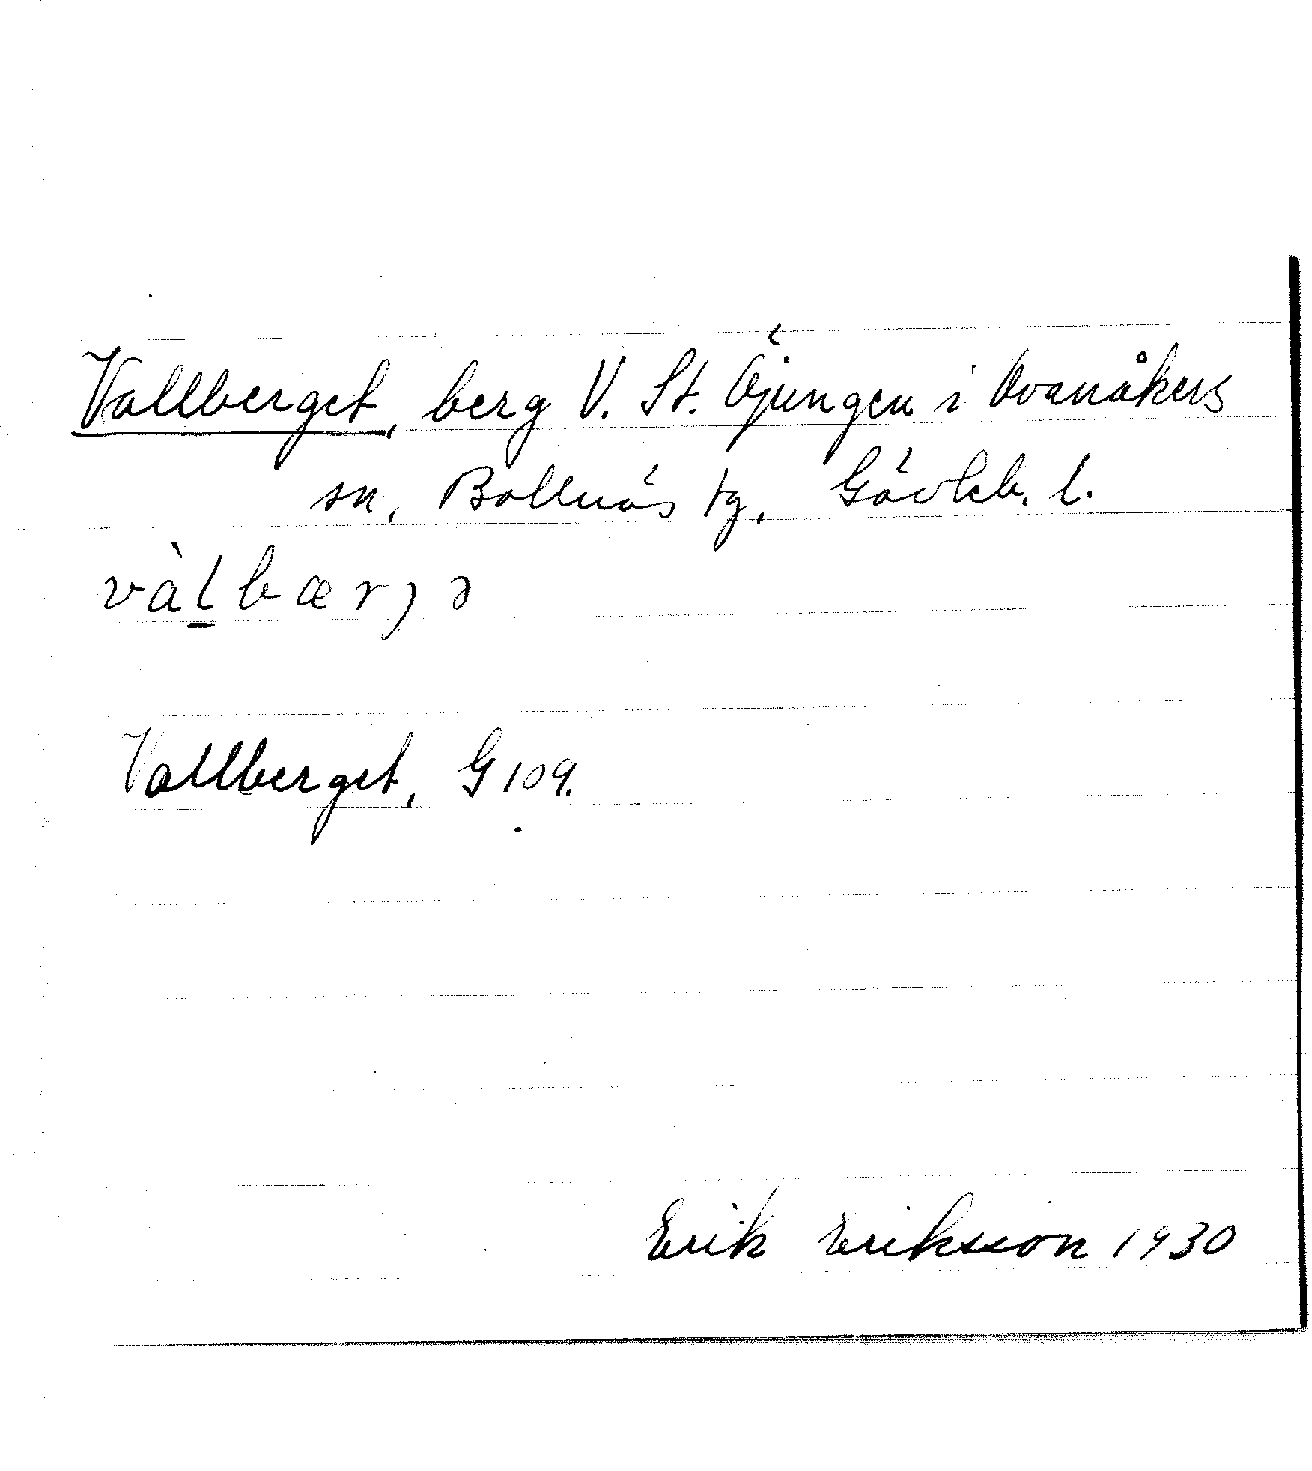 Vallberget, berg V. St. Öjungen i Ovanåkers
sn, Bollnäs tg, Gävleb. l.
vàlbærjə
Vallberget, G 109.
Erik Eriksson 1930